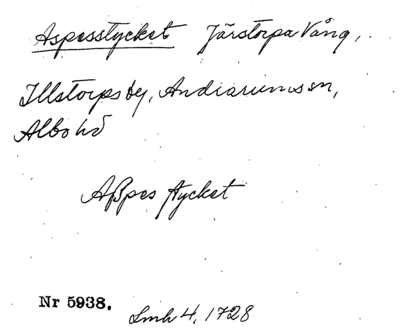 Aspesstycket Järstorpa Vång,
Illstorps by, Andrarums sn,
Albo hd
Aßpes stycket
Nr 5938.
Lmh 4, 1728